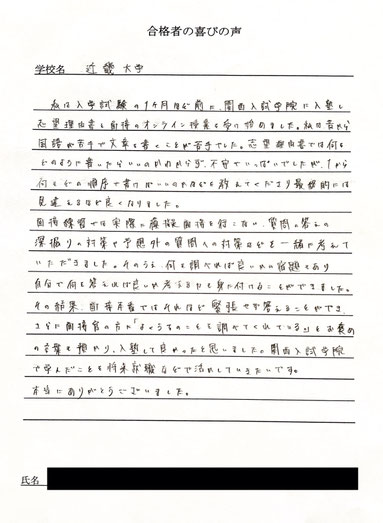 合格者の喜びの声
学校名 近畿大学
私は入学試験の1ヶ月ほど前に、関西入試学院に入塾し
志望理由書と面接のオンライン授業を受け始めました。私は昔から
国語が苦手で文章を書くことが苦手でした。志望理由書では何を
どのように書いたらいいのか分からず、不安でいっぱいでしたが、1から
何をどの順序で書けばいいのかなどを教えてくださり最終的には
見違えるほど良くなりました。
面接練習では実際に模擬面接を行こない、質問の答えの
深掘りの対策や予想外の質問への対策などを一緒に考えて
いただきました。そのうえ、何を調べれば良いかの宿題もあり
自分で何を答えれば良いか考える力も身に付けることができました。
その結果、面接本番ではそれほど緊張せず答えることができ、
さらに面接官の方に「よくうちのことを調べてくれている」とお褒め
の言葉も預かり、入塾して良かったと思いました。関西入試学院
で学んだことを将来就職などで活かしていきたいです。
本当にありがとうございました。
氏名